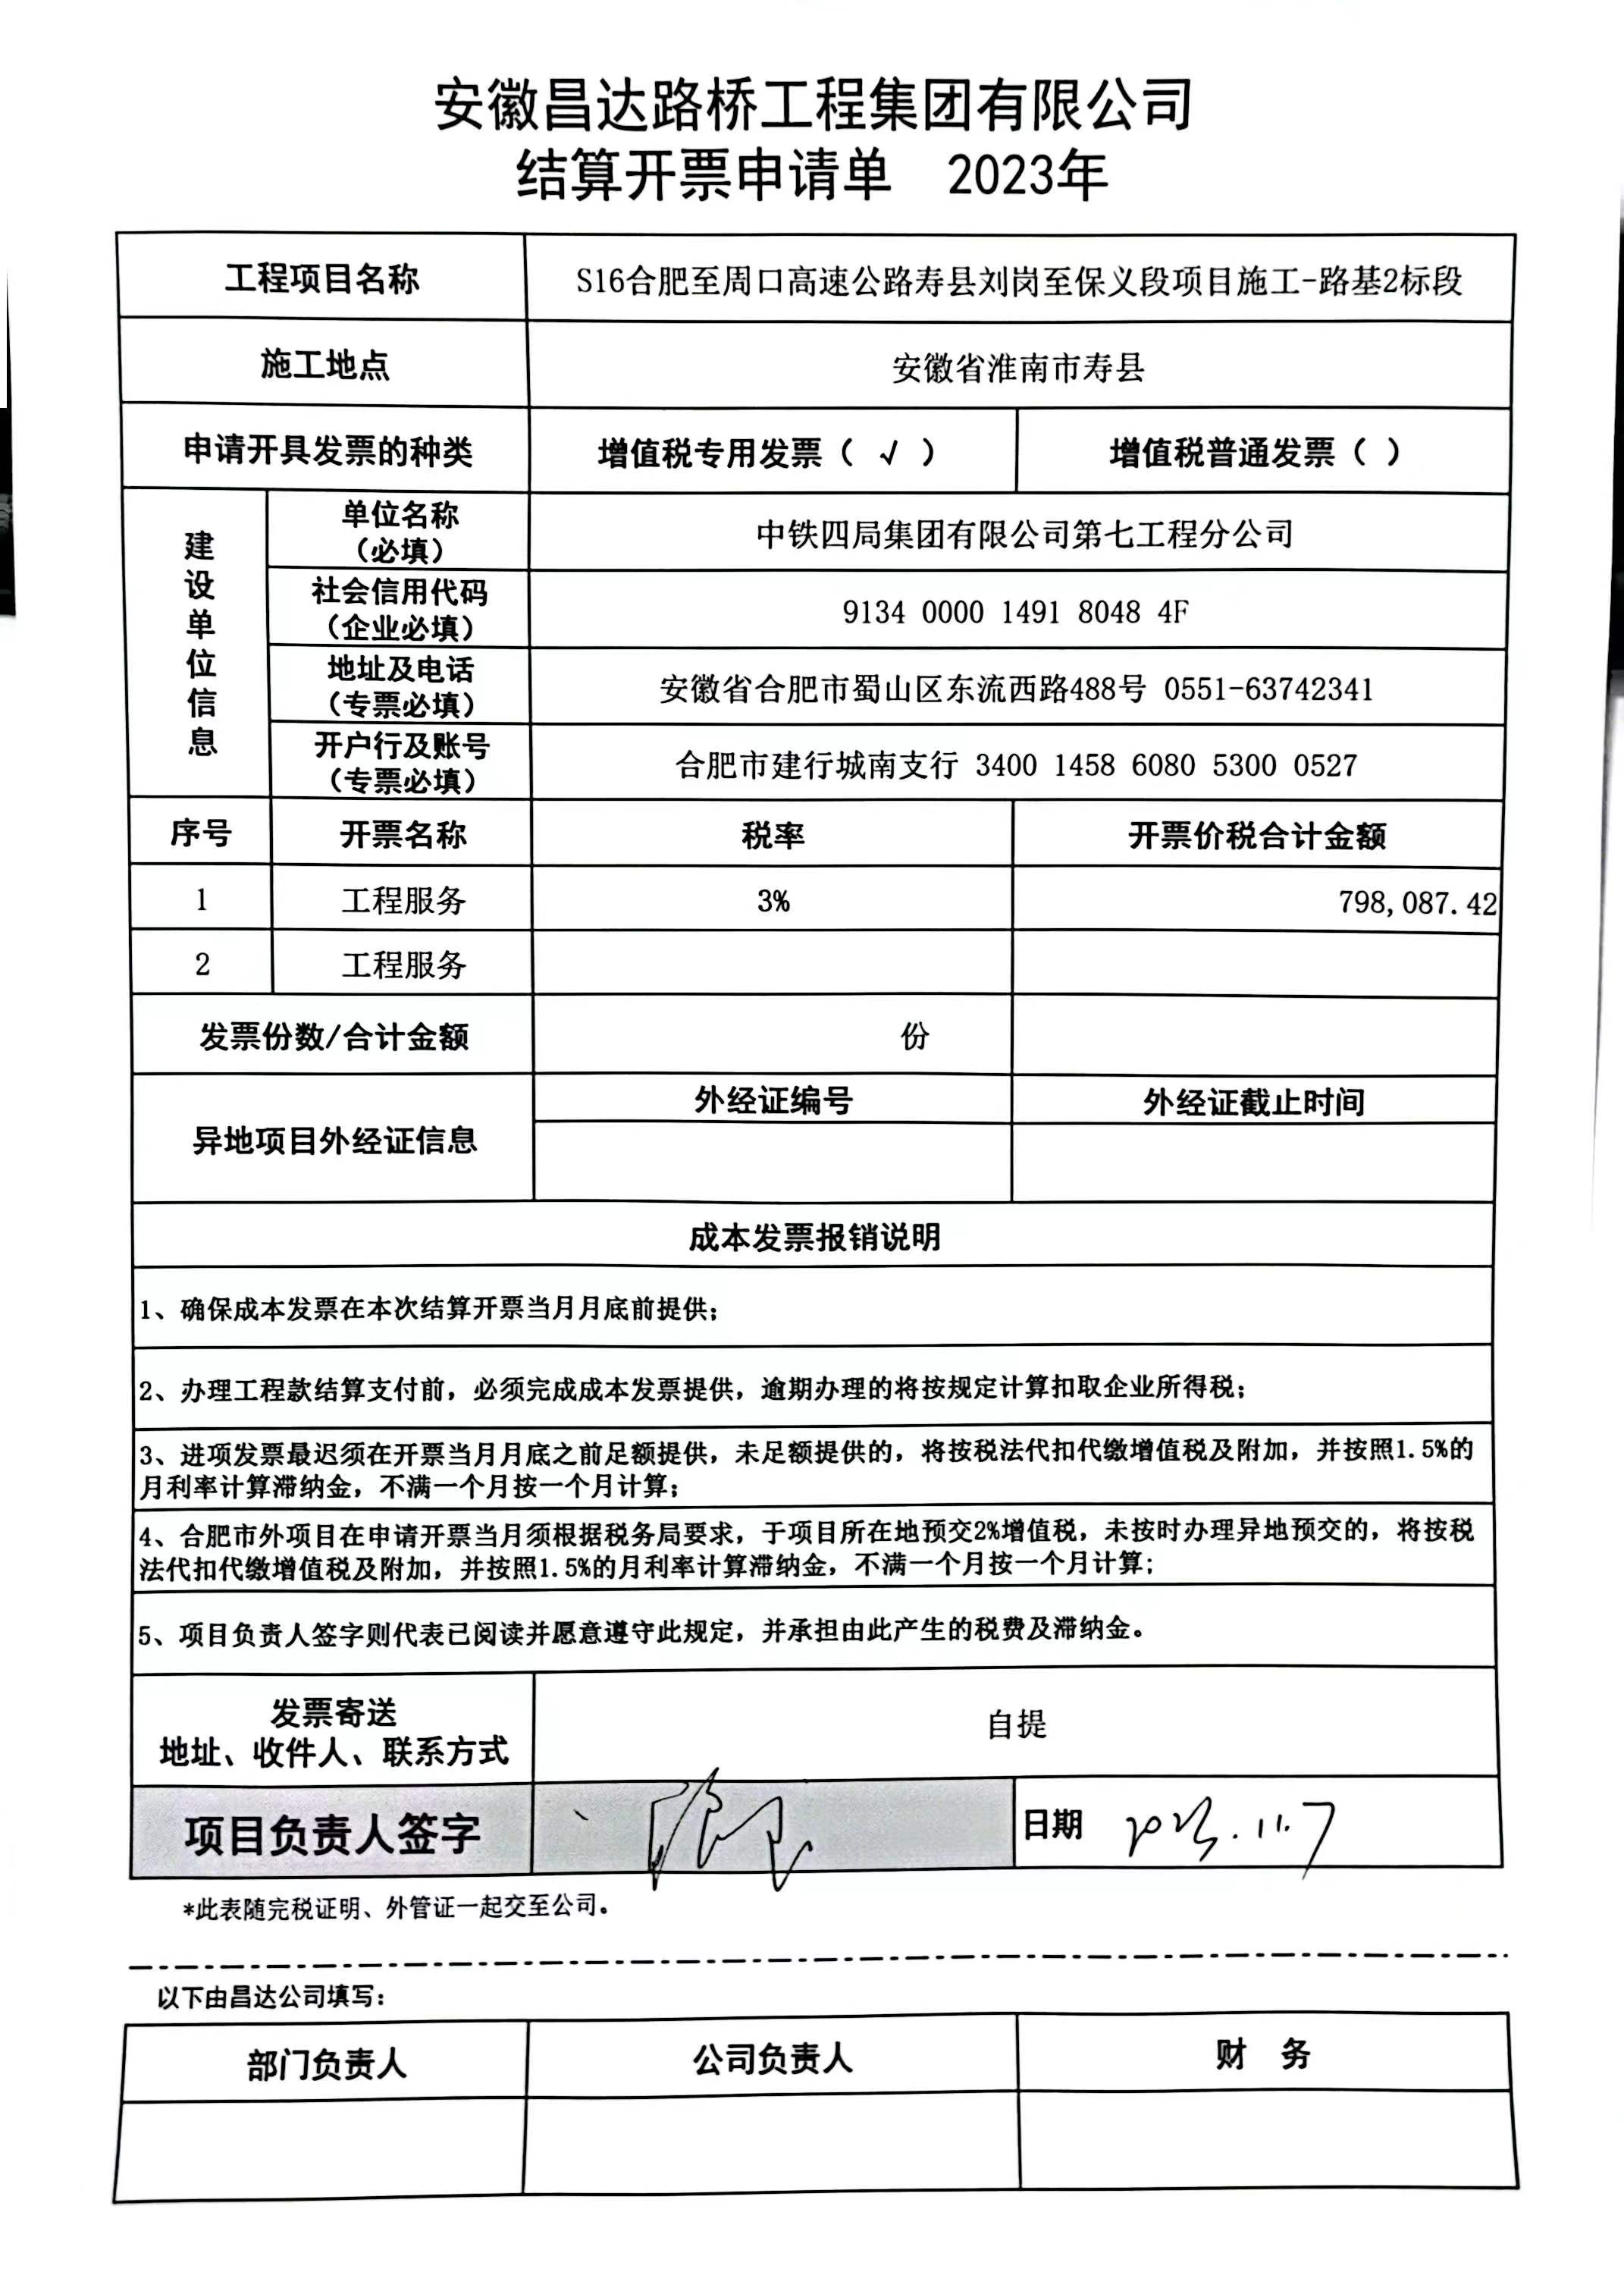 安徽昌达路桥工程集团有限公司
结算开票申请单 2023年
工程项目名称 S16合肥至周口高速公路寿县刘岗至保义段项目施工-路基2标段
施工地点 安徽省淮南市寿县
申请开具发票的种类 增值税专用发票（ √ ） 增值税普通发票（ ）
建设单位信息
单位名称
（必填）
中铁四局集团有限公司第七工程分公司
社会信用代码
（企业必填）
9134 0000 1491 8048 4F
地址及电话
（专票必填）
安徽省合肥市蜀山区东流西路488号 0551-63742341
开户行及账号
（专票必填）
合肥市建行城南支行 3400 1458 6080 5300 0527
序号 开票名称 税率 开票价税合计金额
1 工程服务 3% 798,087.42
2 工程服务
发票份数/合计金额 份
异地项目外经证信息 外经证编号 外经证截止时间
成本发票报销说明
1、确保成本发票在本次结算开票当月月底前提供；
2、办理工程款结算支付前，必须完成成本发票提供，逾期办理的将按规定计算扣取企业所得税；
3、进项发票最迟须在开票当月月底之前足额提供，未足额提供的，将按税法代扣代缴增值税及附加，并按照1.5%的
月利率计算滞纳金，不满一个月按一个月计算；
4、合肥市外项目在申请开票当月须根据税务局要求，于项目所在地预交2%增值税，未按时办理异地预交的，将按税
法代扣代缴增值税及附加，并按照1.5%的月利率计算滞纳金，不满一个月按一个月计算；
5、项目负责人签字则代表已阅读并愿意遵守此规定，并承担由此产生的税费及滞纳金。
发票寄送
地址、收件人、联系方式
自提
项目负责人签字 日期 2023.11.7
*此表随完税证明、外管证一起交至公司。
以下由昌达公司填写：
部门负责人 公司负责人 财 务